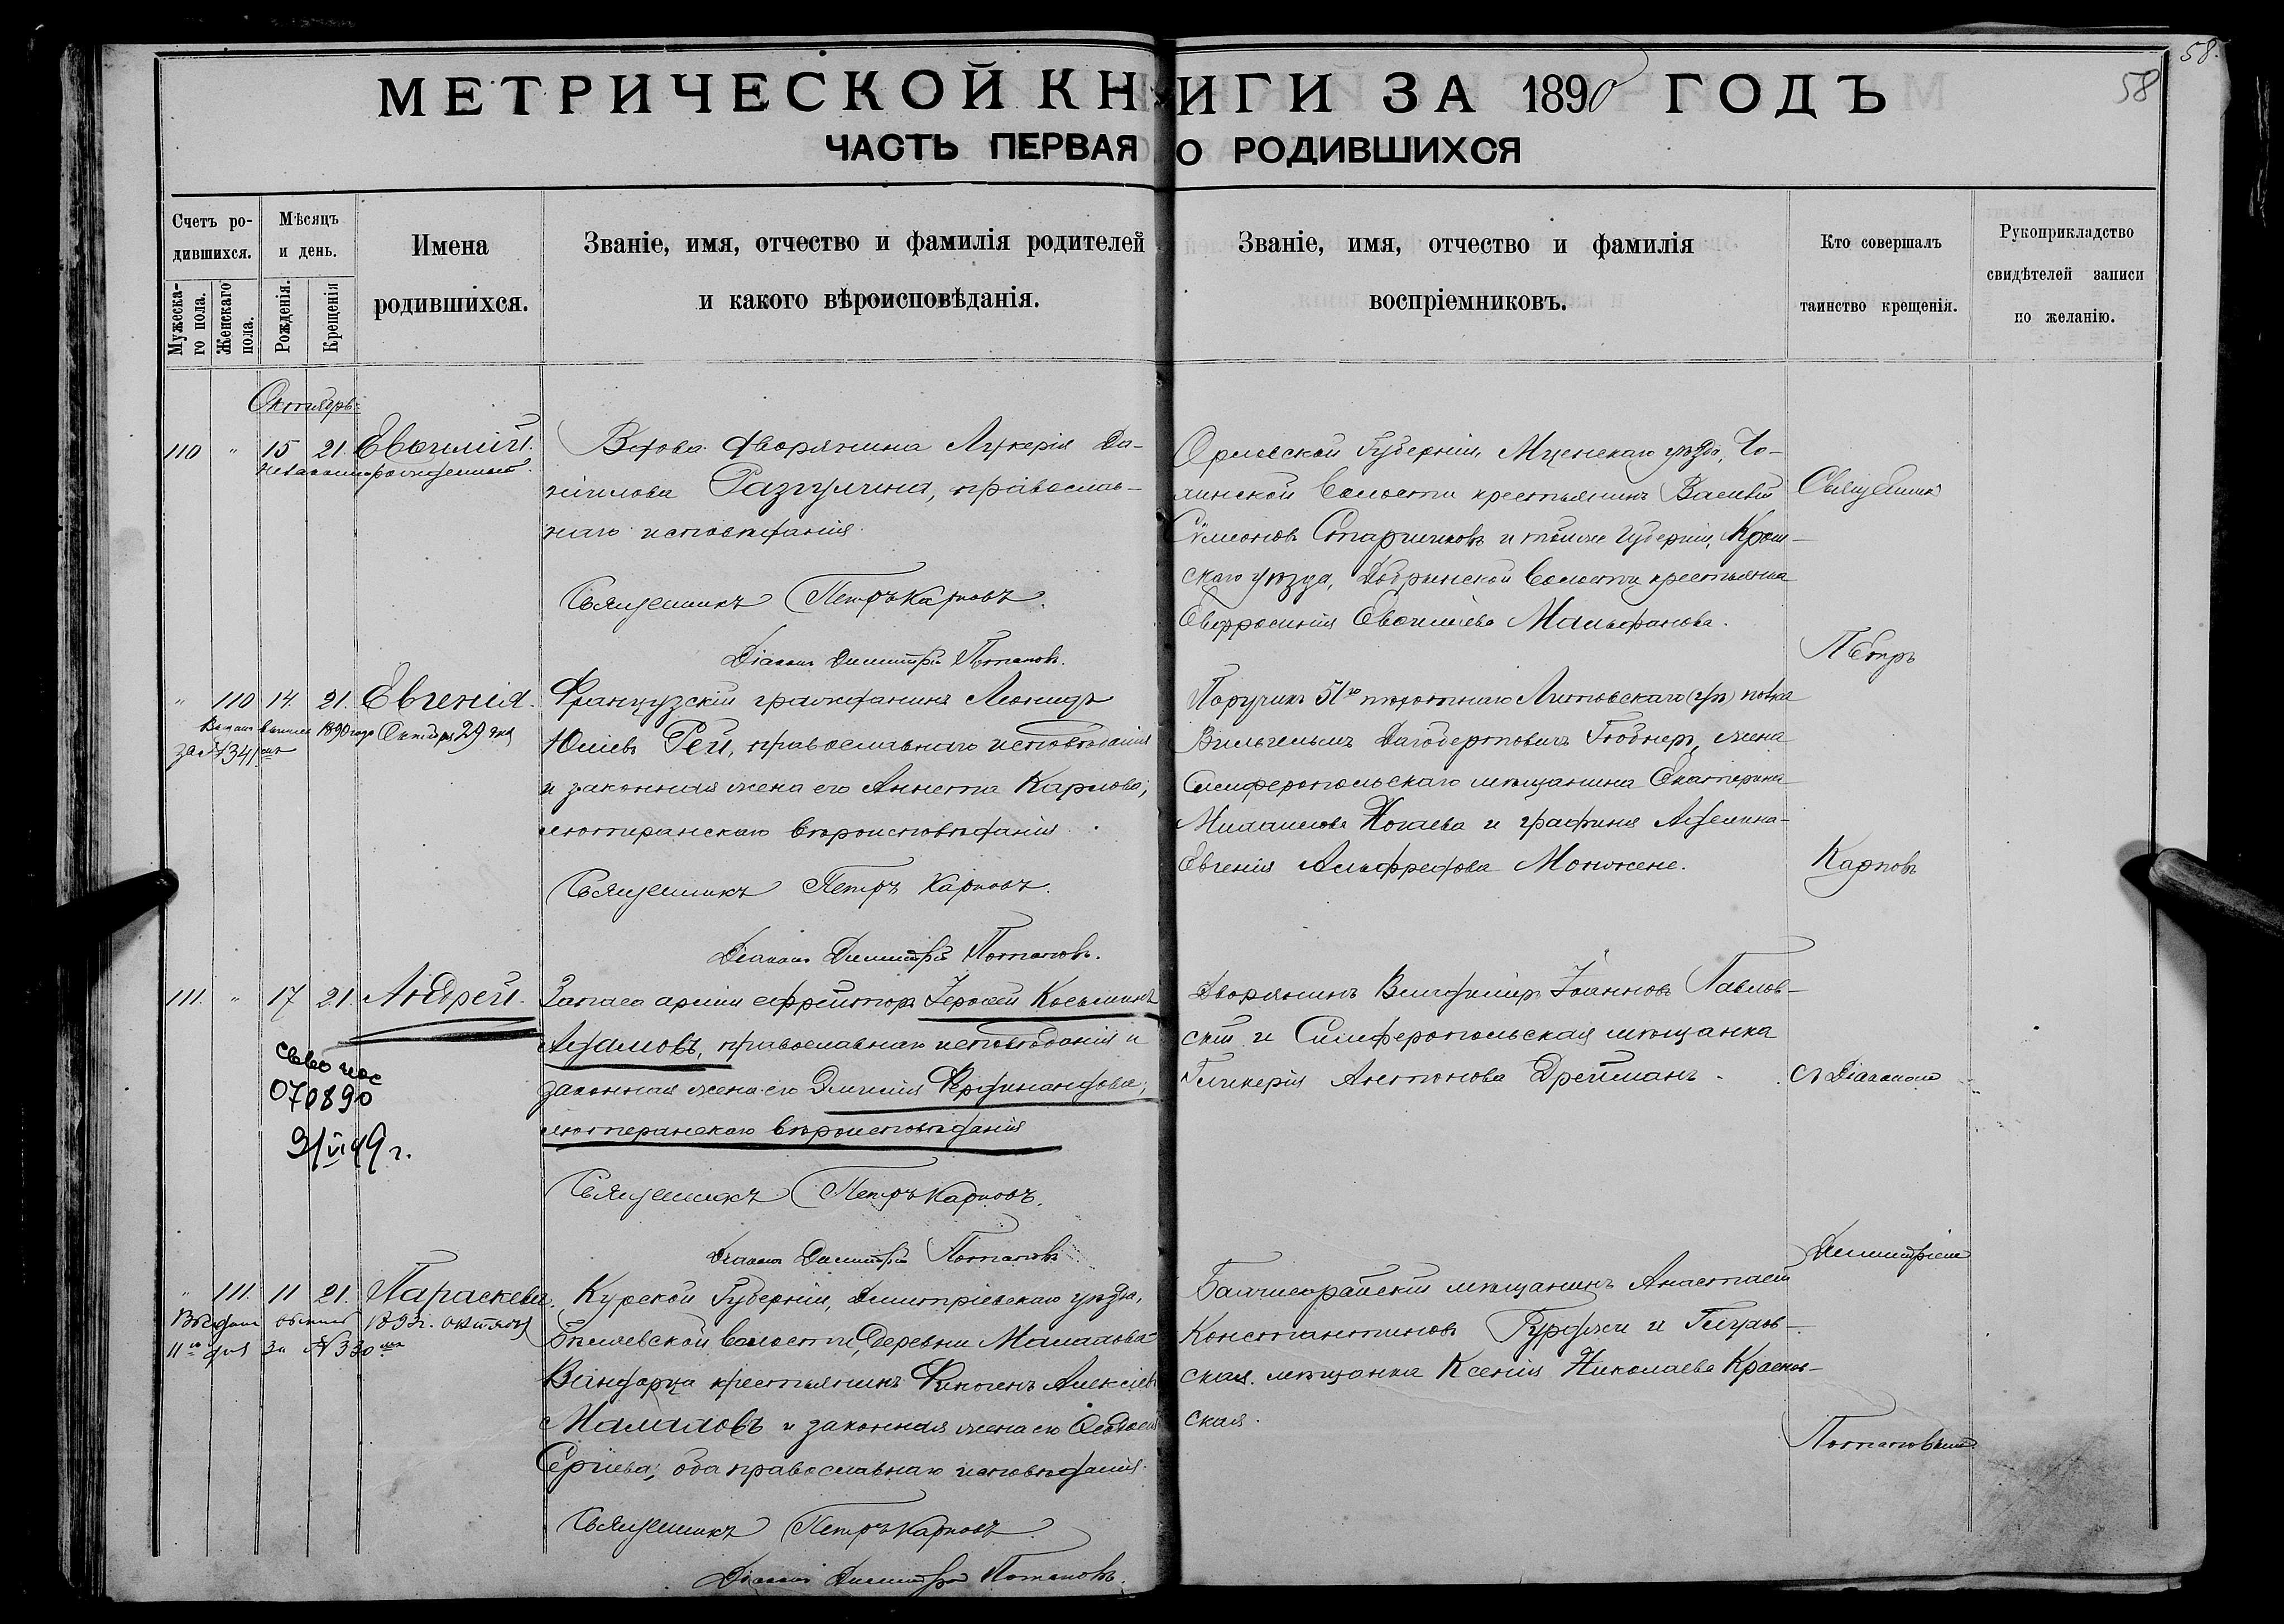 58.
58
МЕТРИЧЕСКОЙ КНИГИ ЗА 1890 ГОДЪ
ЧАСТЬ ПЕРВАЯ О РОДИВШИХСЯ
Счетъ родившихся.
Мужескаго пола.
Женскаго пола.
Мѣсяцъ и день.
Рожденія.
Крещенія
Имена родившихся.
Званіе, имя, отчество и фамилія родителей
и какого вѣроисповѣданія.
Званіе, имя, отчество и фамилія
воспріемниковъ.
Кто совершалъ
таинство крещенія.
Рукоприкладство
свидѣтелей записи
по желанію.
Октябрь
110 " 15 21. Евѳимій.
незаконнорожденный
Вдова дворянина Лукерія Да-
ніилова Разгулина, православ-
наго исповѣданія.
Священникъ Петръ Карповъ.
Діаконъ Димитрій Потаповъ.
Орловской Губерніи, Мценскаго уѣзда,
Волости крестьянинъ Василій
Сѵмеоновъ и тойже Губерніи, Кром-
скаго уѣзда, Добрынской Волости крестьянка
Евфросинія Евѳиміева
Священникъ
Петръ
" 110 14. 21. Евгенія.
1890 года Октября 29 дня
за № 341
Французскій гражданинъ Леонидъ
Юліевъ Рей, православнаго исповѣданія
и законная жена его Аннета Карлова,
лютеранскаго вѣроисповѣданія.
Священникъ Петръ Карповъ.
Діаконъ Димитрій Потаповъ.
Поручикъ 51го пѣхотнаго Литовскаго полка
Вильгельмъ Дагобертовичъ Гюбнеръ, жена
Симферопольскаго мѣщанина Екатерина
Михаилова Ногаева и графиня Аделина-
Евгенія Альфредова Монжене.
Карповъ
111. " 17 21. Андрей.
Запаса арміи ефрейторъ Іероѳей Косьминъ
Адамовъ, православнаго исповѣданія и
законная жена его Эмилія Фердинандова,
лютеранскаго вѣроисповѣданія
Священникъ Петръ Карповъ.
Діаконъ Димитрій Потаповъ.
076890
31/VI 49 г.
Дворянинъ Владиміръ Іоанновъ Павлов-
скій и Симферопольская мѣщанка
Гликерія Антонова Дрейманъ.
съ Діакономъ
Димитріемъ
" 111. 11 21. Параскева.
1893г. октября
11го дня за № 330
Курской Губерніи, Димитріевскаго уѣзда,
Волости, Деревни
крестьянинъ Финогенъ Алексіевъ
и законная жена его Ѳеодосія
Сергіева, оба православнаго исповѣданія.
Священникъ Петръ Карповъ
Діаконъ Димитрій Потаповъ.
Бахчисарайскій мѣщанинъ Анастасій
Константиновъ Гурджи и
ская мѣщанка Ксенія Николаева Краснов-
ская.
Потаповымъ